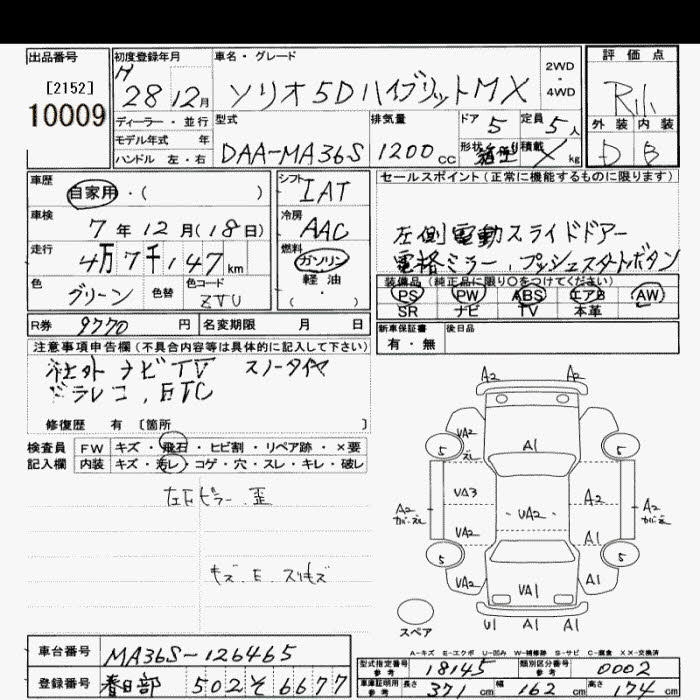 出品番号
[2152]
10009
初度登録年月
H 28 12月
車名・グレード
ソリオ5DハイブリットMX
2WD
・
4WD
評価点
外装 内装
D B
ディーラー・並行
モデル年式 年
ハンドル 左・右
型式
DAA-MA36S
排気量
1200cc
ドア 5
定員 5人
形状 箱型
積載 X kg
車歴
自家用・( )
車検
7年12月(18日)
走行
4万7千147km
色
グリーン
色替
色コード
ZVU
シフト
IAT
冷房
AAC
燃料
ガソリン
軽油
( )
セールスポイント(正常に機能するものに限ります)
左側電動スライドドアー
電格ミラー、プッシュスタートボタン
装備品(純正品に限り○をつけてください)
PS PW ABS エアB AW
SR ナビ TV 本革
R券 9770円
名変期限 月 日
新車保証書
有・無
後日品
注意事項申告欄(不具合内容等は具体的に記入して下さい)
社外ナビTV スノータイヤ
ドラレコ、ETC
修復歴 有〔箇所 〕
検査員
記入欄
FW キズ・飛石・ヒビ割・リペア跡・×要
内装 キズ・汚レ・コゲ・穴・スレ・キレ・破レ
左Fピラー歪
キズ、E、スリキズ
A2 A2
VA2
A1
5 5
VA3
A2
A2
VA2
A2
VA2
A1
5 5
VA2
VA1
A1
U1 A1 A1
スペア
A-キズ E-エクボ U-凹み W-補修跡 S-サビ C-腐食 XX-交換済
車台番号
MA36S-126465
登録番号
春日部 502 そ 6677
型式指定番号
参考
18145
類別区分番号
参考
0002
車庫証明用
参考
長さ 371cm
幅 162cm
高さ 174cm